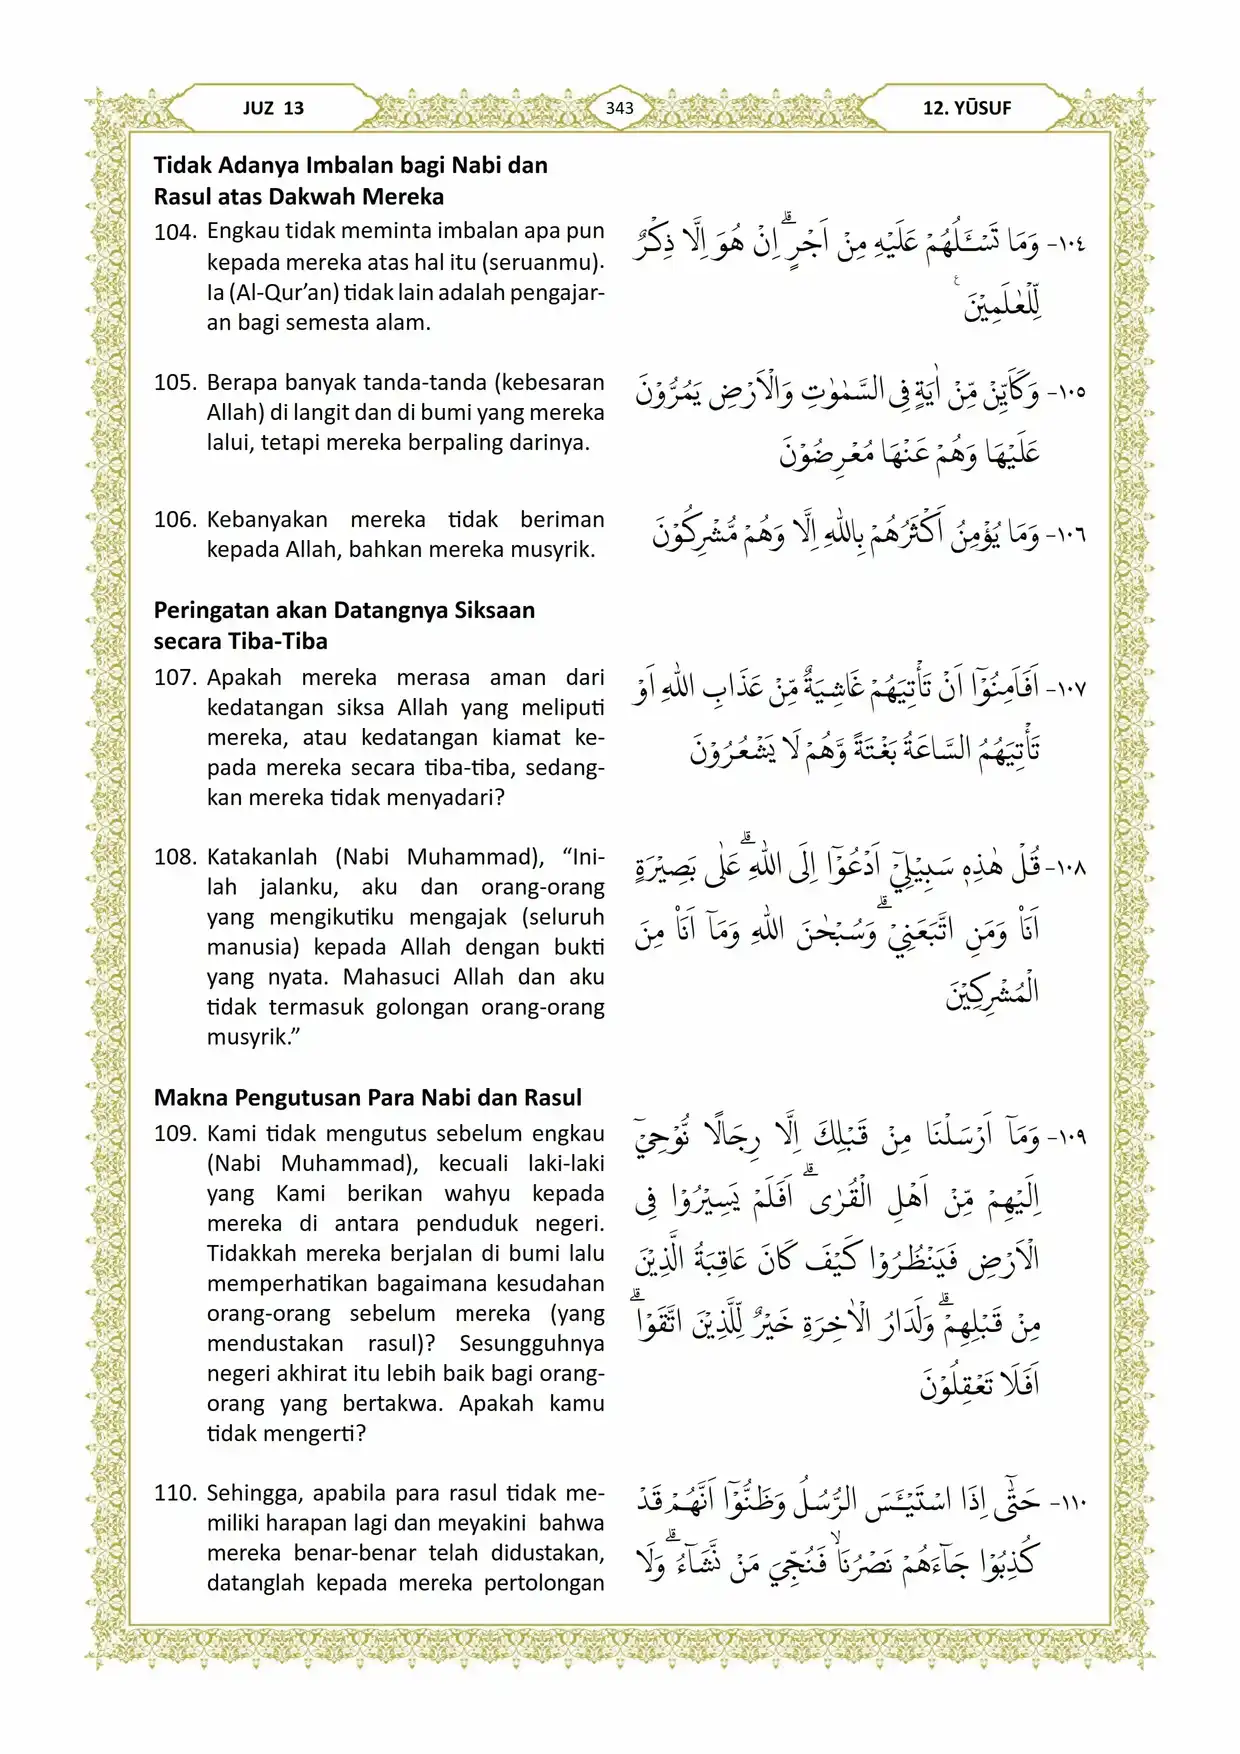 JUZ 13
343
12. YŪSUF
Tidak Adanya Imbalan bagi Nabi dan
Rasul atas Dakwah Mereka
104. Engkau tidak meminta imbalan apa pun
kepada mereka atas hal itu (seruanmu).
Ia (Al-Qur’an) tidak lain adalah pengajar-
an bagi semesta alam.
١٠٤- وَمَا تَسْـَٔلُهُمْ عَلَيْهِ مِنْ اَجْرٍۗ اِنْ هُوَ اِلَّا ذِكْرٌ
لِّلْعٰلَمِيْنَ ࣖ
105. Berapa banyak tanda-tanda (kebesaran
Allah) di langit dan di bumi yang mereka
lalui, tetapi mereka berpaling darinya.
١٠٥- وَكَاَيِّنْ مِّنْ اٰيَةٍ فِى السَّمٰوٰتِ وَالْاَرْضِ يَمُرُّوْنَ
عَلَيْهَا وَهُمْ عَنْهَا مُعْرِضُوْنَ
106. Kebanyakan mereka tidak beriman
kepada Allah, bahkan mereka musyrik.
١٠٦- وَمَا يُؤْمِنُ اَكْثَرُهُمْ بِاللّٰهِ اِلَّا وَهُمْ مُّشْرِكُوْنَ
Peringatan akan Datangnya Siksaan
secara Tiba-Tiba
107. Apakah mereka merasa aman dari
kedatangan siksa Allah yang meliputi
mereka, atau kedatangan kiamat ke-
pada mereka secara tiba-tiba, sedang-
kan mereka tidak menyadari?
١٠٧- اَفَاَمِنُوْٓا اَنْ تَأْتِيَهُمْ غَاشِيَةٌ مِّنْ عَذَابِ اللّٰهِ اَوْ
تَأْتِيَهُمُ السَّاعَةُ بَغْتَةً وَّهُمْ لَا يَشْعُرُوْنَ
108. Katakanlah (Nabi Muhammad), “Ini-
lah jalanku, aku dan orang-orang
yang mengikutiku mengajak (seluruh
manusia) kepada Allah dengan bukti
yang nyata. Mahasuci Allah dan aku
tidak termasuk golongan orang-orang
musyrik.”
١٠٨- قُلْ هٰذِهٖ سَبِيْلِيْٓ اَدْعُوْٓا اِلَى اللّٰهِ ۗعَلٰى بَصِيْرَةٍ
اَنَا۠ وَمَنِ اتَّبَعَنِيْ ۗوَسُبْحٰنَ اللّٰهِ وَمَآ اَنَا۠ مِنَ
الْمُشْرِكِيْنَ
Makna Pengutusan Para Nabi dan Rasul
109. Kami tidak mengutus sebelum engkau
(Nabi Muhammad), kecuali laki-laki
yang Kami berikan wahyu kepada
mereka di antara penduduk negeri.
Tidakkah mereka berjalan di bumi lalu
memperhatikan bagaimana kesudahan
orang-orang sebelum mereka (yang
mendustakan rasul)? Sesungguhnya
negeri akhirat itu lebih baik bagi orang-
orang yang bertakwa. Apakah kamu
tidak mengerti?
١٠٩- وَمَآ اَرْسَلْنَا مِنْ قَبْلِكَ اِلَّا رِجَالًا نُّوْحِيْٓ
اِلَيْهِمْ مِّنْ اَهْلِ الْقُرٰىۗ اَفَلَمْ يَسِيْرُوْا فِى
الْاَرْضِ فَيَنْظُرُوْا كَيْفَ كَانَ عَاقِبَةُ الَّذِيْنَ
مِنْ قَبْلِهِمْۗ وَلَدَارُ الْاٰخِرَةِ خَيْرٌ لِّلَّذِيْنَ اتَّقَوْاۗ
اَفَلَا تَعْقِلُوْنَ
110. Sehingga, apabila para rasul tidak me-
miliki harapan lagi dan meyakini bahwa
mereka benar-benar telah didustakan,
datanglah kepada mereka pertolongan
١١٠- حَتّٰٓى اِذَا اسْتَيْـَٔسَ الرُّسُلُ وَظَنُّوْٓا اَنَّهُمْ قَدْ
كُذِبُوْا جَاۤءَهُمْ نَصْرُنَاۙ فَنُجِّيَ مَنْ نَّشَاۤءُ ۗوَلَا